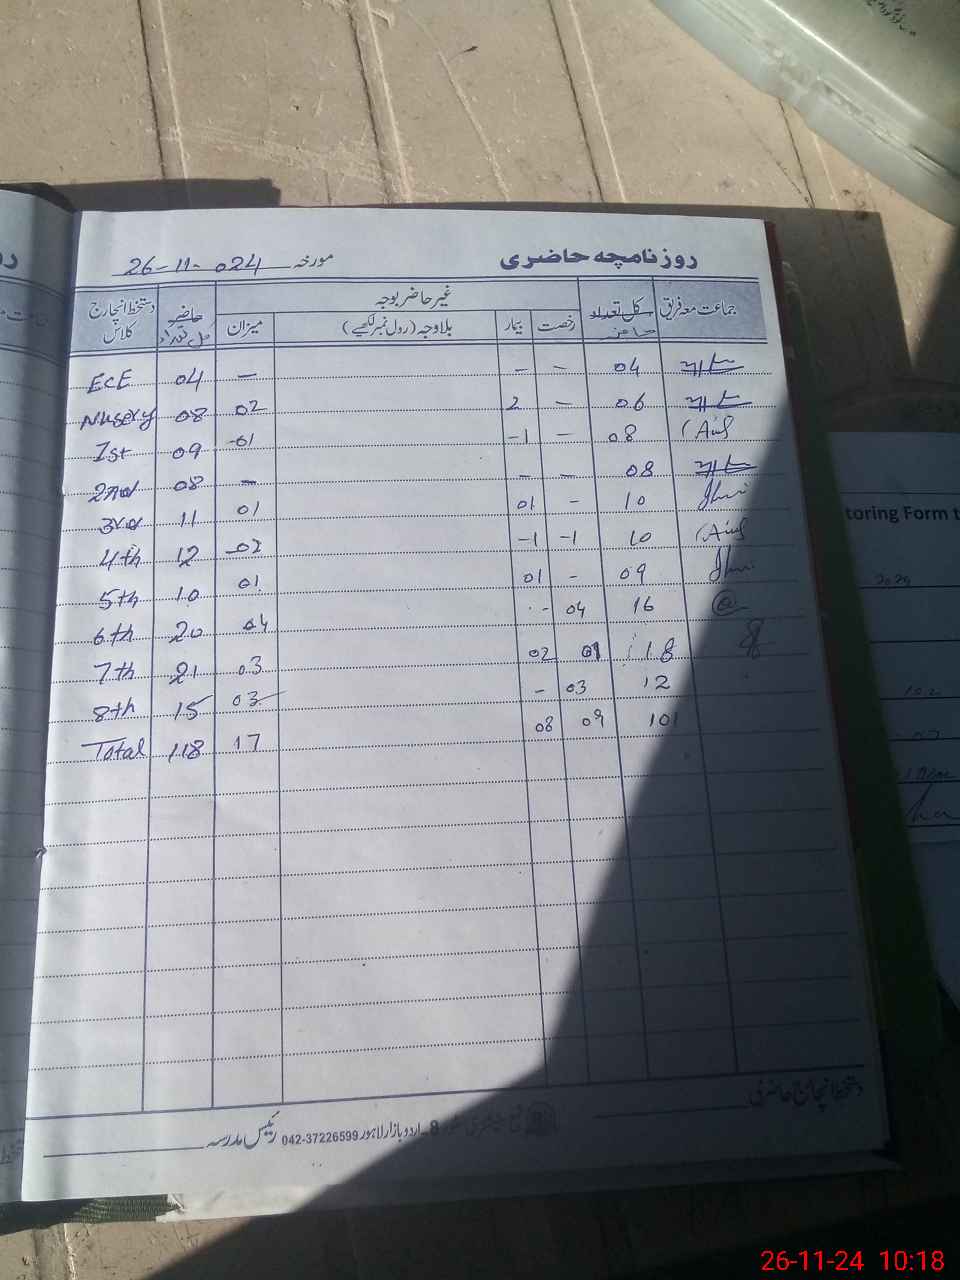 روزنامچہ حاضری مورخہ 26-11-024
جماعت معہ فریق کل تعداد حاضر غیر حاضر بوجہ حاضر کل تعداد دستخط انچارج کلاس
رخصت بیمار بلاوجہ (رول نمبر لکھیے) میزان
ECE 04 — - - 04
Nusery 08 02 2 - 06
1st 09 -01 -1 - 08
2nd 08 — - - 08
3rd 11 01 01 - 10
4th 12 -02 -1 -1 10
5th 10 01 01 - 09
6th 20 04 -- 04 16
7th 21 03 02 01 18
8th 15 03 - 03 12
Total 118 17 08 09 101
دستخط انچارج حاضری
8۔اردو بازار لاہور 042-37226599 رئیس مدرسہ
toring Form t
2024
102
26-11-24 10:18